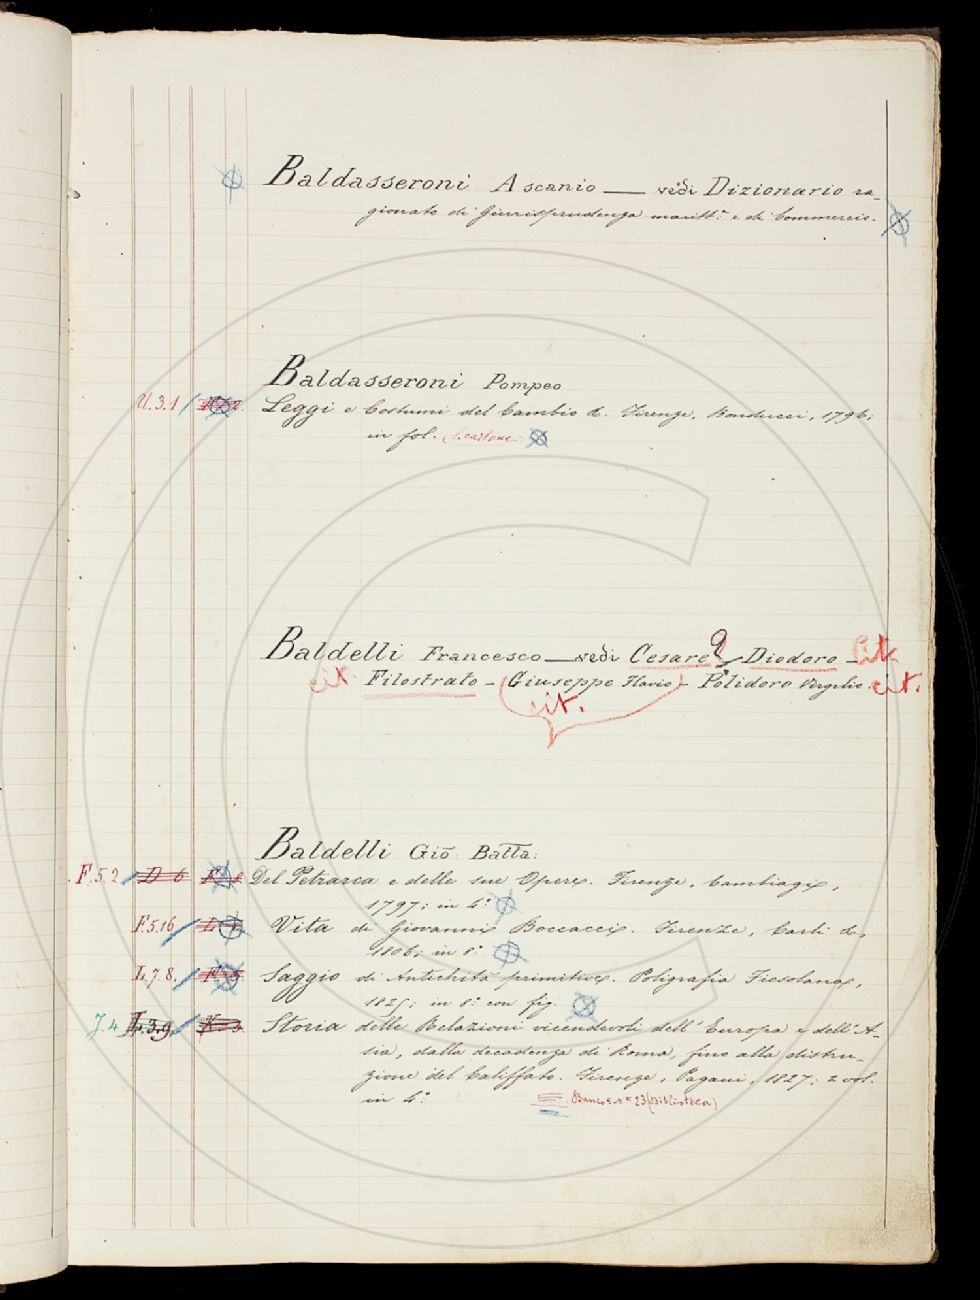 Baldasseroni Ascanio — vedi Dizionario ra-
gionato di Giurisprudenza maritt.ª e di Commercio.
Baldasseroni Pompeo
U.3.1 Leggi e Costumi del Cambio &. Firenze, Bonducci, 1796;
in fol. S. cartone
Baldelli Francesco — vedi Cesare ? Diodoro - cit.
cit. Filostrato - (Giuseppe Flavio) - Polidoro Virgilio. cit.
cit.
Baldelli Gio: Batta:
F.5.2 D 6 Del Petrarca e delle sue Opere. Firenze, Cambiagi,
1797; in 4.º
F.5.16 Vita di Giovanni Boccacci. Firenze, Carli &,
1806; in 8.º
L.7.8. Saggio di Antichità primitive. Poligrafia Fiesolana,
1825; in 8.º con fig.
J.4 L.3.9 Storia delle Relazioni vicendevoli dell'Europa e dell'A-
sia, dalla decadenza di Roma, fino alla distru-
zione del Califfato. Firenze, Pagani, 1827; 2 vol.
in 4.º Banco nº 23 (Biblioteca)